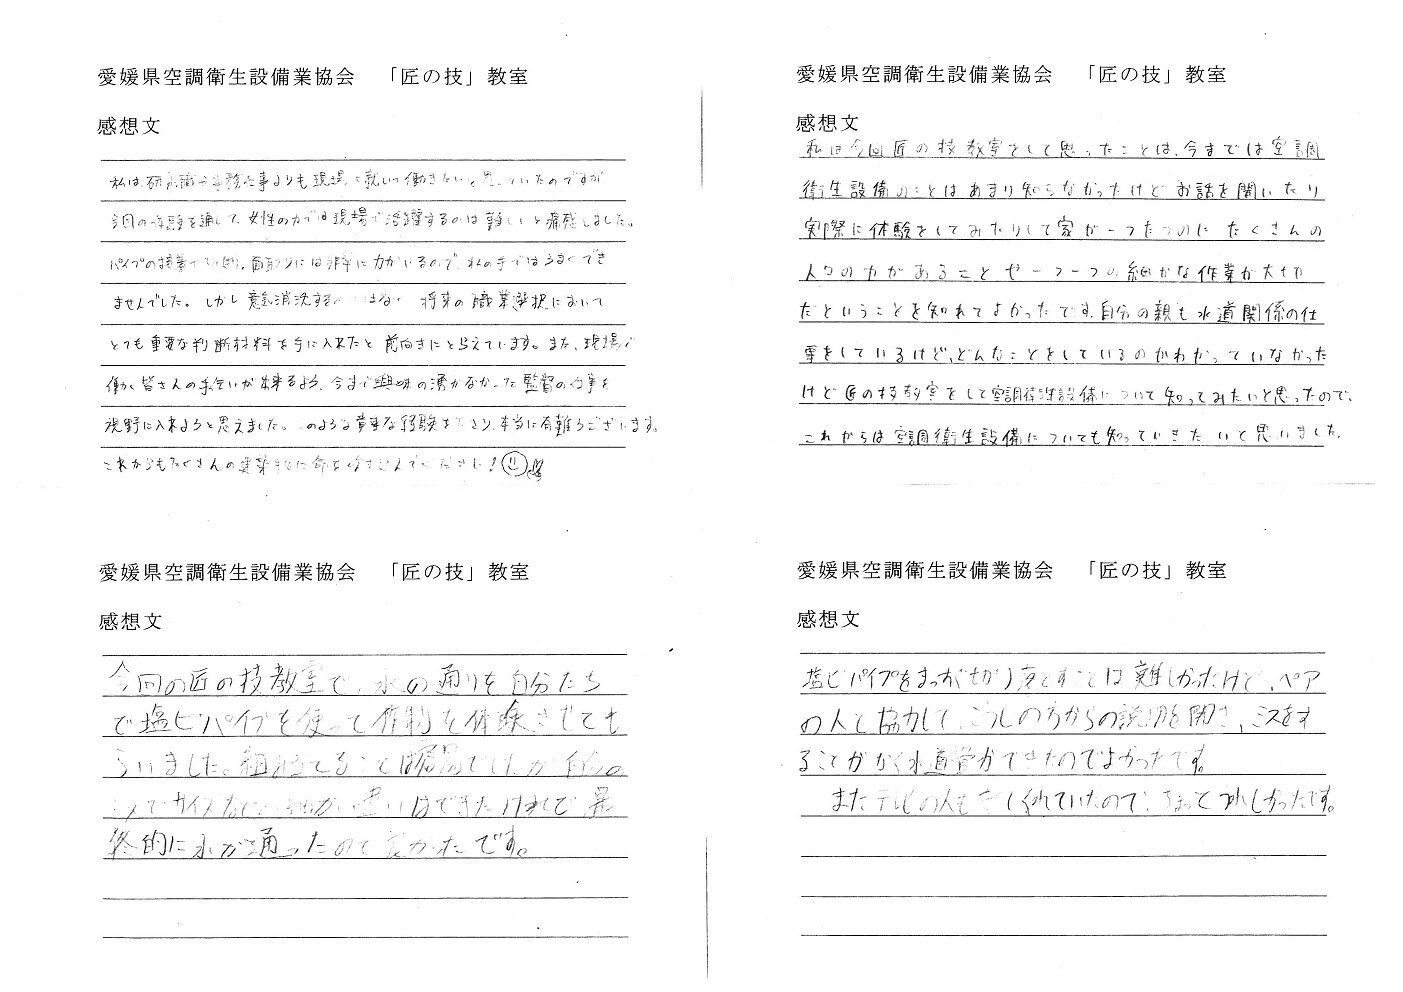 愛媛県空調衛生設備業協会 「匠の技」教室
感想文
私は、研究職や事務仕事よりも現場に就いて働きたいと思っていたのですが
今回の体験を通して、女性の力では現場で活躍するのは難しいと痛感しました。
パイプの接着や切断、面取りには非常に力がいるので、私の手ではうまくでき
ませんでした。しかし意気消沈する 将来の職業選択において
とても重要な判断材料を手に入れたと前向きにとらえています。また、現場で
働く皆さんの手伝いが出来るよう、今まで興味の湧かなかった監督の仕事を
視野に入れようと思えました。このような貴重な経験を下さり、本当に有難うございます。
これからもたくさんの建築物に命を吹き込んでください!
愛媛県空調衛生設備業協会 「匠の技」教室
感想文
私は今回匠の技教室をして思ったことは、今までは空調
衛生設備のことはあまり知らなかったけどお話を聞いたり
実際に体験をしてみたりして家が一つたつのにたくさんの
人々の力があることや一つ一つの細かな作業が大切
だということを知れてよかったです。自分の親も水道関係の仕
事をしているけど、どんなことをしているのかわかっていなかった
けど匠の技教室をして空調衛生設備について知ってみたいと思ったので、
これからは空調衛生設備についても知っていきたいと思いました。
愛媛県空調衛生設備業協会 「匠の技」教室
感想文
今回の匠の技教室で、水の通りを自分たち
で塩ビパイプを使って作業を体験させても
らいました。組み立てることは簡単でしたが自分の
ミスでサイズなどの細かい違いはできたけれど最
終的に水が通ったので良かったです。
愛媛県空調衛生設備業協会 「匠の技」教室
感想文
塩ビパイプをまっすぐ切り落とすことは難しかったけど、ペア
の人と協力して、こうしの方からの説明を聞き、ミスをす
ることがなく水道管ができたのでよかったです。
またテレビの人も してくれていたので、ちょっとうれしかったです。